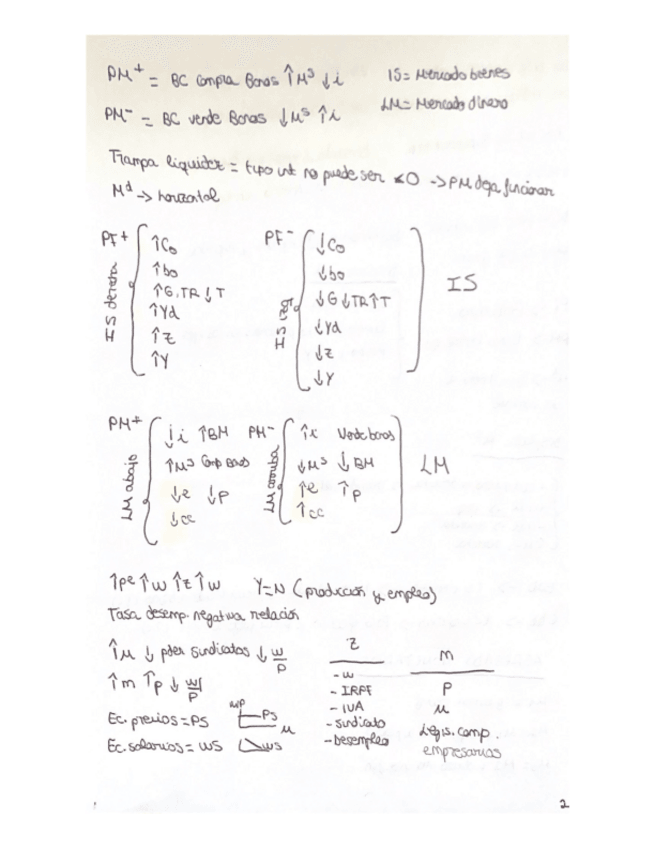 PM+ = BC compra Bonos ↑Mˢ ↓i
IS = Mercado bienes
PM- = BC vende Bonos ↓Mˢ ↑i
LM = Mercado dinero
Trampa liquidez = tipo int no puede ser <0 -> PM deja funcionar
Mᵈ -> horizontal
PF+
IS derecha
↑Co
↑bo
↑G, TR ↓T
↑Yd
↑Z
↑Y
PF-
IS izq
↓Co
↓bo
↓G ↓TR ↑T
↓Yd
↓Z
↓Y
IS
PM+
LM abajo
↓i ↑BM
↑Mˢ Comp Bonos
↓e ↓p
↓cc
PM-
LM arriba
↑i Vende bonos
↓Mˢ ↓BM
↑e ↑p
↑cc
LM
↑pe ↑w ↑z ↑w Y=N (producción y empleo)
Tasa desemp. negativa relación
↑μ ↓ poder sindicatos ↓ w/p
↑m ↑p ↓ w/p
Ec. precios = PS
w/p
PS
μ
Ec. salarios = WS
WS
Z
- w
- IRPF
- IVA
- sindicato
- Desempleo
m
P
μ
Legis. comp
empresarias
2